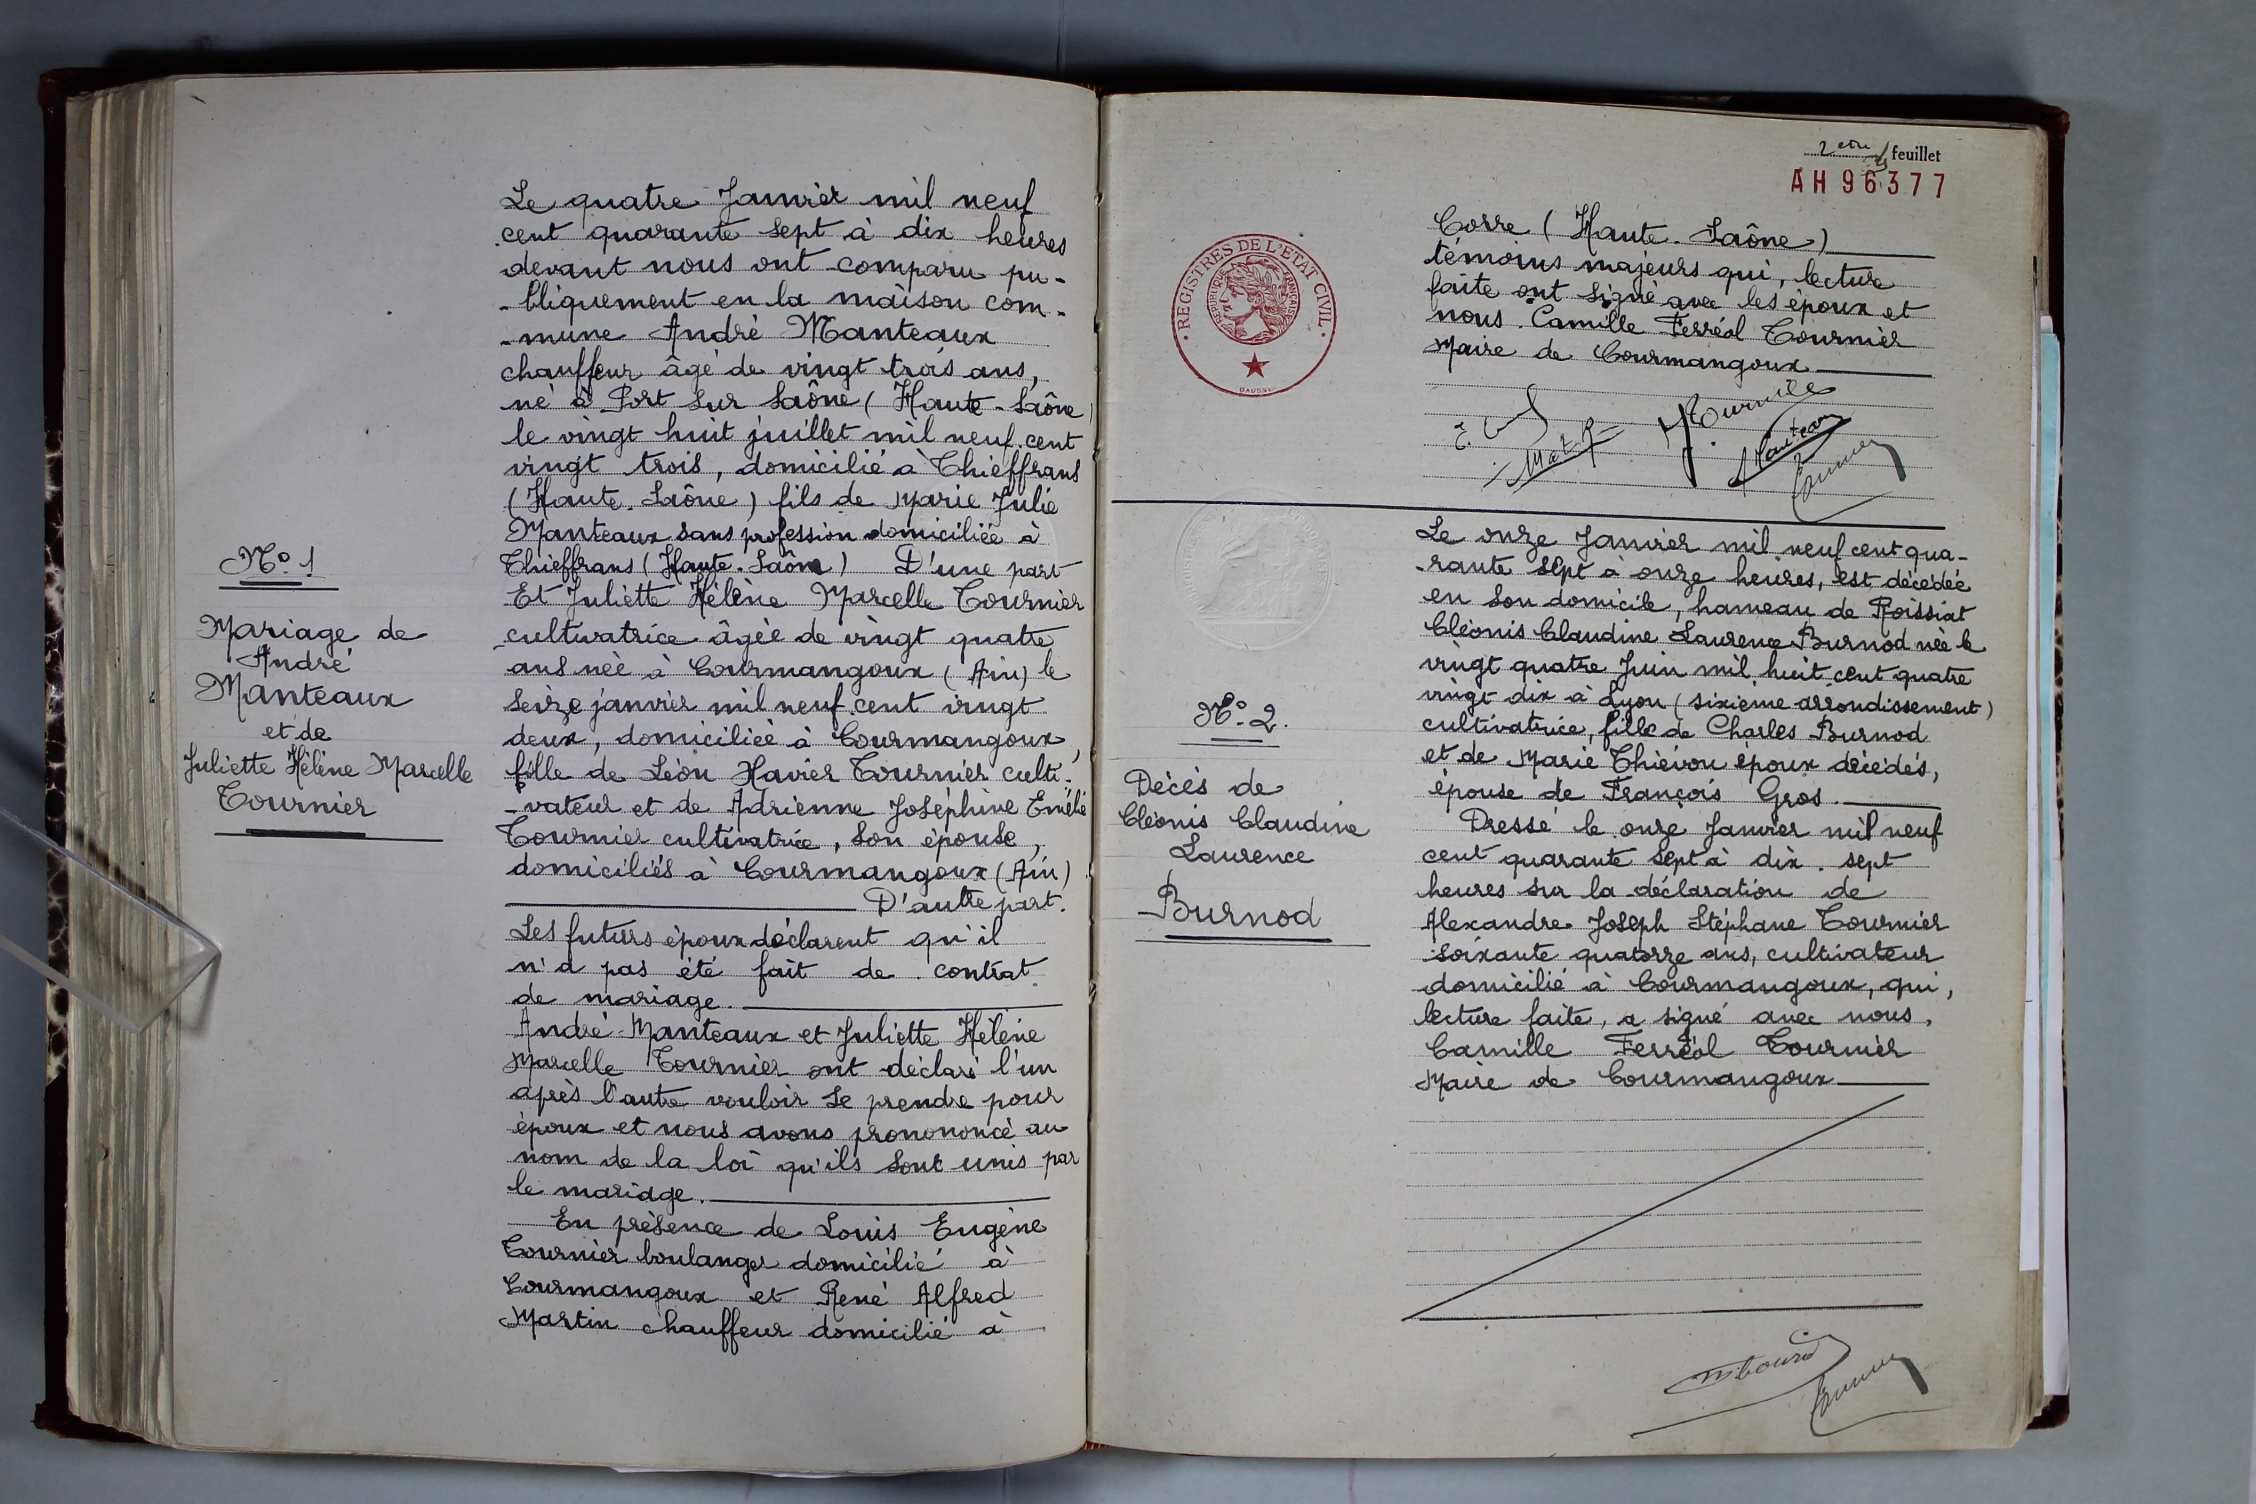 Nº 1
Mariage de
André
Manteaux
et de
Juliette Hélène Marcelle
Tournier
Le quatre Janvier mil neuf
cent quarante sept à dix heures
devant nous ont comparu pu-
-bliquement en la maison com-
-mune André Manteaux
chauffeur âgé de vingt trois ans,
né à Port sur Saône (Haute-Saône)
le vingt huit juillet mil neuf cent
vingt trois, domicilié à Thieffrans
(Haute-Saône) fils de Marie Julie
Manteaux sans profession domiciliée à
Thieffrans (Haute-Saône) D'une part
Et Juliette Hélène Marcelle Tournier
cultivatrice âgée de vingt quatre
ans née à Courmangoux (Ain) le
seize janvier mil neuf cent vingt
deux, domiciliée à Courmangoux,
fille de Léon Xavier Tournier culti-
-vateur et de Adrienne Joséphine Emélie
Tournier cultivatrice, son épouse,
domiciliés à Courmangoux (Ain)
D'autre part.
Les futurs époux déclarent qu'il
n'a pas été fait de contrat
de mariage.
André Manteaux et Juliette Hélène
Marcelle Tournier ont déclaré l'un
après l'autre vouloir se prendre pour
époux et nous avons pronononcé au
nom de la loi qu'ils sont unis par
le mariage.
En présence de Louis Eugène
Tournier boulanger domicilié à
Courmangoux et René Alfred
Martin chauffeur domicilié à
2eme feuillet
AH 96377
REGISTRES DE L'ETAT CIVIL
REPUBLIQUE FRANÇAISE
Corre (Haute-Saône)
témoins majeurs qui, lecture
faite ont signé avec les époux et
nous. Camille Ferréol Tournier
Maire de Courmangoux
Tournier
Manteaux
Tournier
Nº 2.
Décès de
Cléonis Claudine
Laurence
Burnod
Le onze Janvier mil neuf cent qua-
-rante sept à onze heures, est décédée
en son domicile, hameau de Roissiat
Cléonis Claudine Laurence Burnod née le
vingt quatre Juin mil huit cent quatre
vingt dix à Lyon (sixième arrondissement)
cultivatrice, fille de Charles Burnod
et de Marie Thiévon époux décédés,
épouse de François Gros.
Dressé le onze Janvier mil neuf
cent quarante sept à dix-sept
heures sur la déclaration de
Alexandre Joseph Stéphane Tournier
soixante quatorze ans, cultivateur
domicilié à Courmangoux, qui,
lecture faite, a signé avec nous,
Camille Ferréol Tournier
Maire de Courmangoux
Tournier